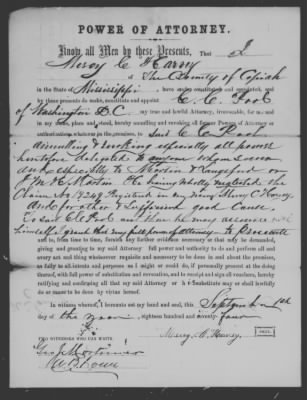 POWER OF ATTORNEY.
Know all Men by these Presents, That I
Mercy C Harvy
of The County of Copiah
in the State of Mississippi, have made, constituted and appointed, and
by these presents do make, constitute and appoint C. C. Pool
of Washington D.C. my true and lawful Attorney, irrevocable, for me and
in my name, place and stead, hereby annulling and revoking all former Powers of Attorney or
authorizations whatever in the premises, to said C C Pool
annulling & revoking especially all power
heretofore delegated to anyone whomsoever
and especially to
M & Martin He having wholly neglected the
Claim No 19249
And for other & sufficient good Cause,
to said C C Pool
himself I grant this my full power of attorney to Prosecute
and to, from time to time, furnish any further evidence necessary or that may be demanded,
giving and granting to my said Attorney full power and authority to do and perform all and
every act and thing whatsoever requisite and necessary to be done in and about the premises,
as fully to all intents and purposes as I might or could do, if personally present at the doing
thereof, with full power of substitution and revocation, and to receipt and sign all vouchers, hereby
ratifying and confirming all that my said Attorney or his Substitute may or shall lawfully
do or cause to be done by virtue hereof.
In witness whereof, I hereunto set my hand and seal, this September 1st
day of the year eighteen hundred and seventy four
Mercy C. Harvey [SEAL.]
TWO WITNESSES WHO CAN WRITE